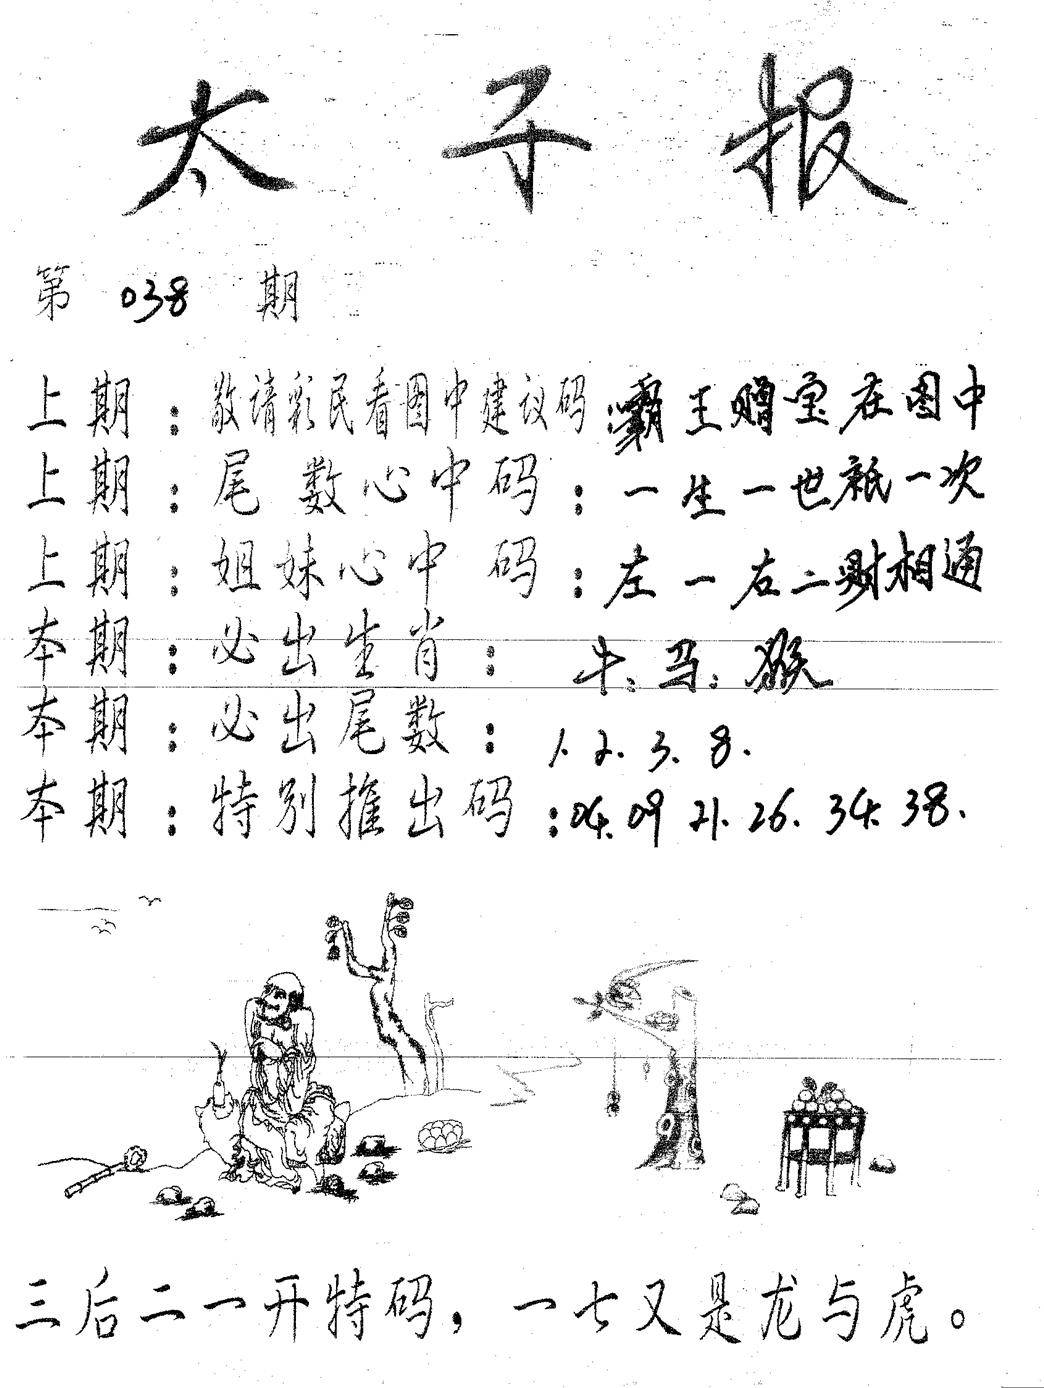 太子报
第 038 期
上期：敬请彩民看图中建议码：霸王赠宝在图中
上期：尾数心中码：一生一世祇一次
上期：姐妹心中码：左一右二财相通
本期：必出生肖：牛、马、猴
本期：必出尾数：1. 2. 3. 8.
本期：特别推出码：04. 09 21. 26. 34. 38.
三后二一开特码，一七又是龙与虎。